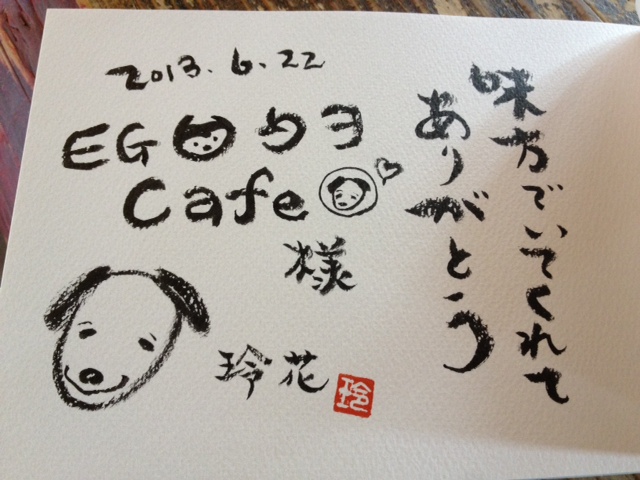 2013.6.22
EGOのヲ
Cafe
様
味方でいてくれて
ありがとう
玲花
玲